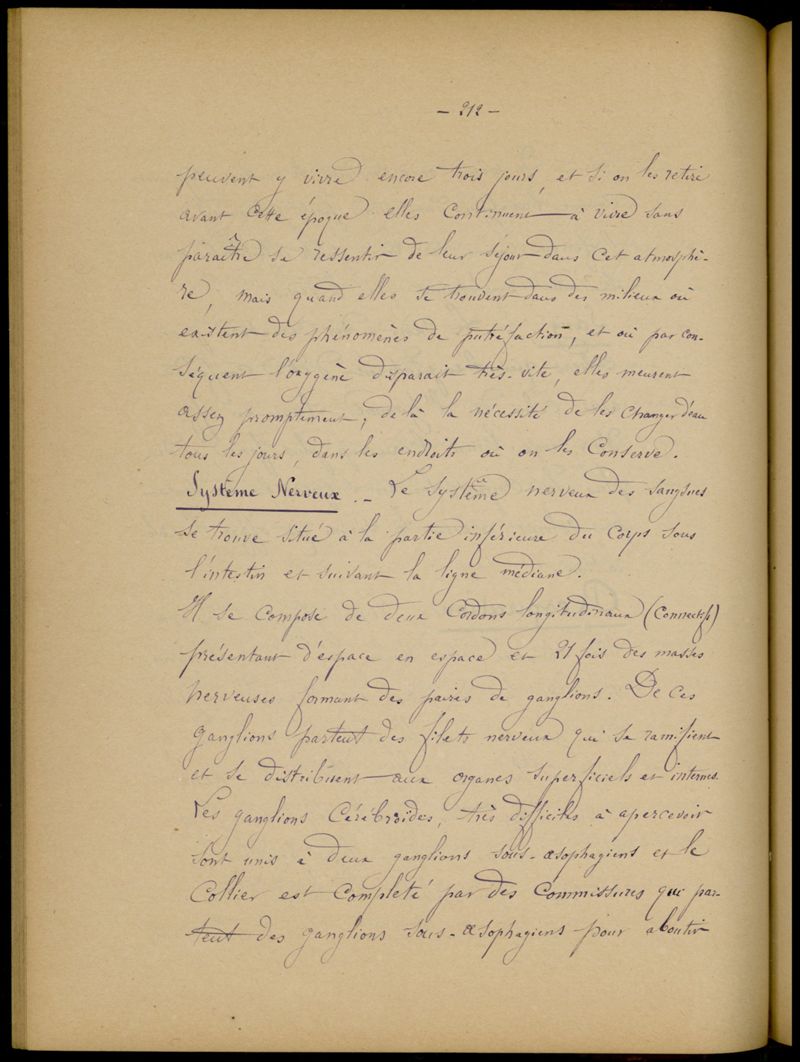 - 212 -
peuvent y vivre encore trois jours, et si on les retire
avant cette époque elles continuent à vivre sans
paraître se ressentir de leur séjour dans cet atmosphè-
re, mais quand elles se trouvent dans des milieux où
existent des phénomènes de putréfaction, et où par con-
séquent l'oxygène disparait très-vite, elles meurent
assez promptement, de là la nécessité de les changer d'eau
tous les jours, dans les endroits où on les conserve.
Système Nerveux. - Le système nerveux des sangsues
se trouve situé à la partie inférieure du corps sous
l'intestin et suivant la ligne médiane.
Il se compose de deux cordons longitudinaux (connectifs)
présentant d'espace en espace et 21 fois des masses
nerveuses formant des paires de ganglions. De ces
ganglions partent des filets nerveux qui se ramifient
et se distribuent aux organes superficiels et internes.
Les ganglions Cérébroïdes, très difficiles à apercevoir
sont unis à deux ganglions sous-œsophagiens et le
Collier est complété par des commissures qui par-
tent des ganglions sous-œsophagiens pour aboutir